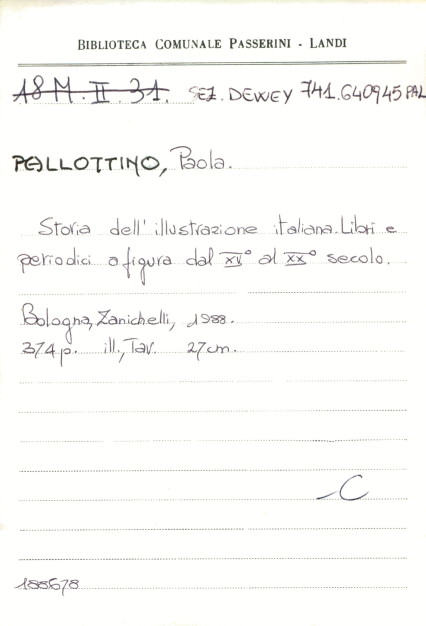 BIBLIOTECA COMUNALE PASSERINI - LANDI
18 M. II. 31. SEZ. DEWEY 741.640945 PAL
PALLOTTINO, Paola.
Storia dell'illustrazione italiana. Libri e
periodici a figura dal XV° al XX° secolo.
Bologna, Zanichelli, 1988.
374p. ill., Tav. 27cm.
-C
188678